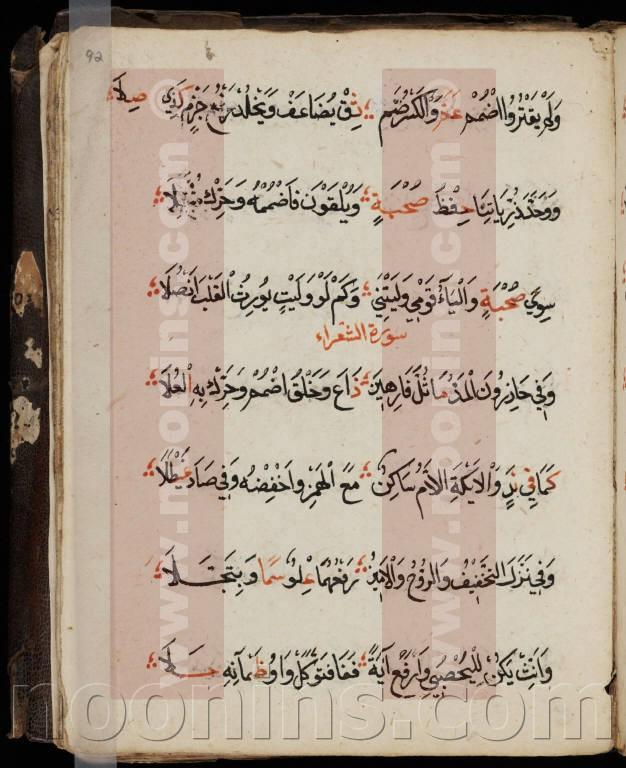 92
وَلَمْ يَقْتِرُوا اضْمُمْ عَمَّ وَالْكَسْرَ ضُمَّ ثِقْ يُضَاعَفْ وَيَخْلُدْ رَفْعُ جَزْمٍ كَذِي صِلَا
وَوَحَّدَ ذُرِّيَّاتِنَا حِفْظُ صُحْبَةٍ وَيَلْقَوْنَ فَاضْمُمْهُ وَحَرِّكْ مُثَقِّلَا
سِوَى صُحْبَةٍ وَالْيَاءُ قَوْمِي وَلَيْتَنِي وَكَمْ لَوْ وَلَيْتٍ يُورِثُ الْقَلْبَ أَنْصُلَا
سورة الشعراء
وَفِي حَاذِرُونَ الْمَدُّ مَا ثُلَّ فَارِهِينَ ذَاعَ وَخَلْقُ اضْمُمْ وَحَرِّكْ بِهِ الْعُلَا
كَمَا فِي نَدٍ وَالْأَيْكَةِ اللَّامُ سَاكِنٌ مَعَ الْهَمْزِ وَاخْفِضْهُ وَفِي صَادَ غَيْطَلَا
وَفِي نَزَّلَ التَّخْفِيفُ وَالرُّوحُ وَالْأَمِينُ رَفْعُهُمَا عُلُوٌّ سَمَا وَتَبَجَّلَا
وَأَنِّثْ يَكُنْ لِلْيَحْصُبِي وَارْفَعْ آيَةً وَفَا فَتَوَكَّلْ وَاوُ ظَمْآنِهِ حَلَا
www.noonins.com
www.noonins.com
noonins.com